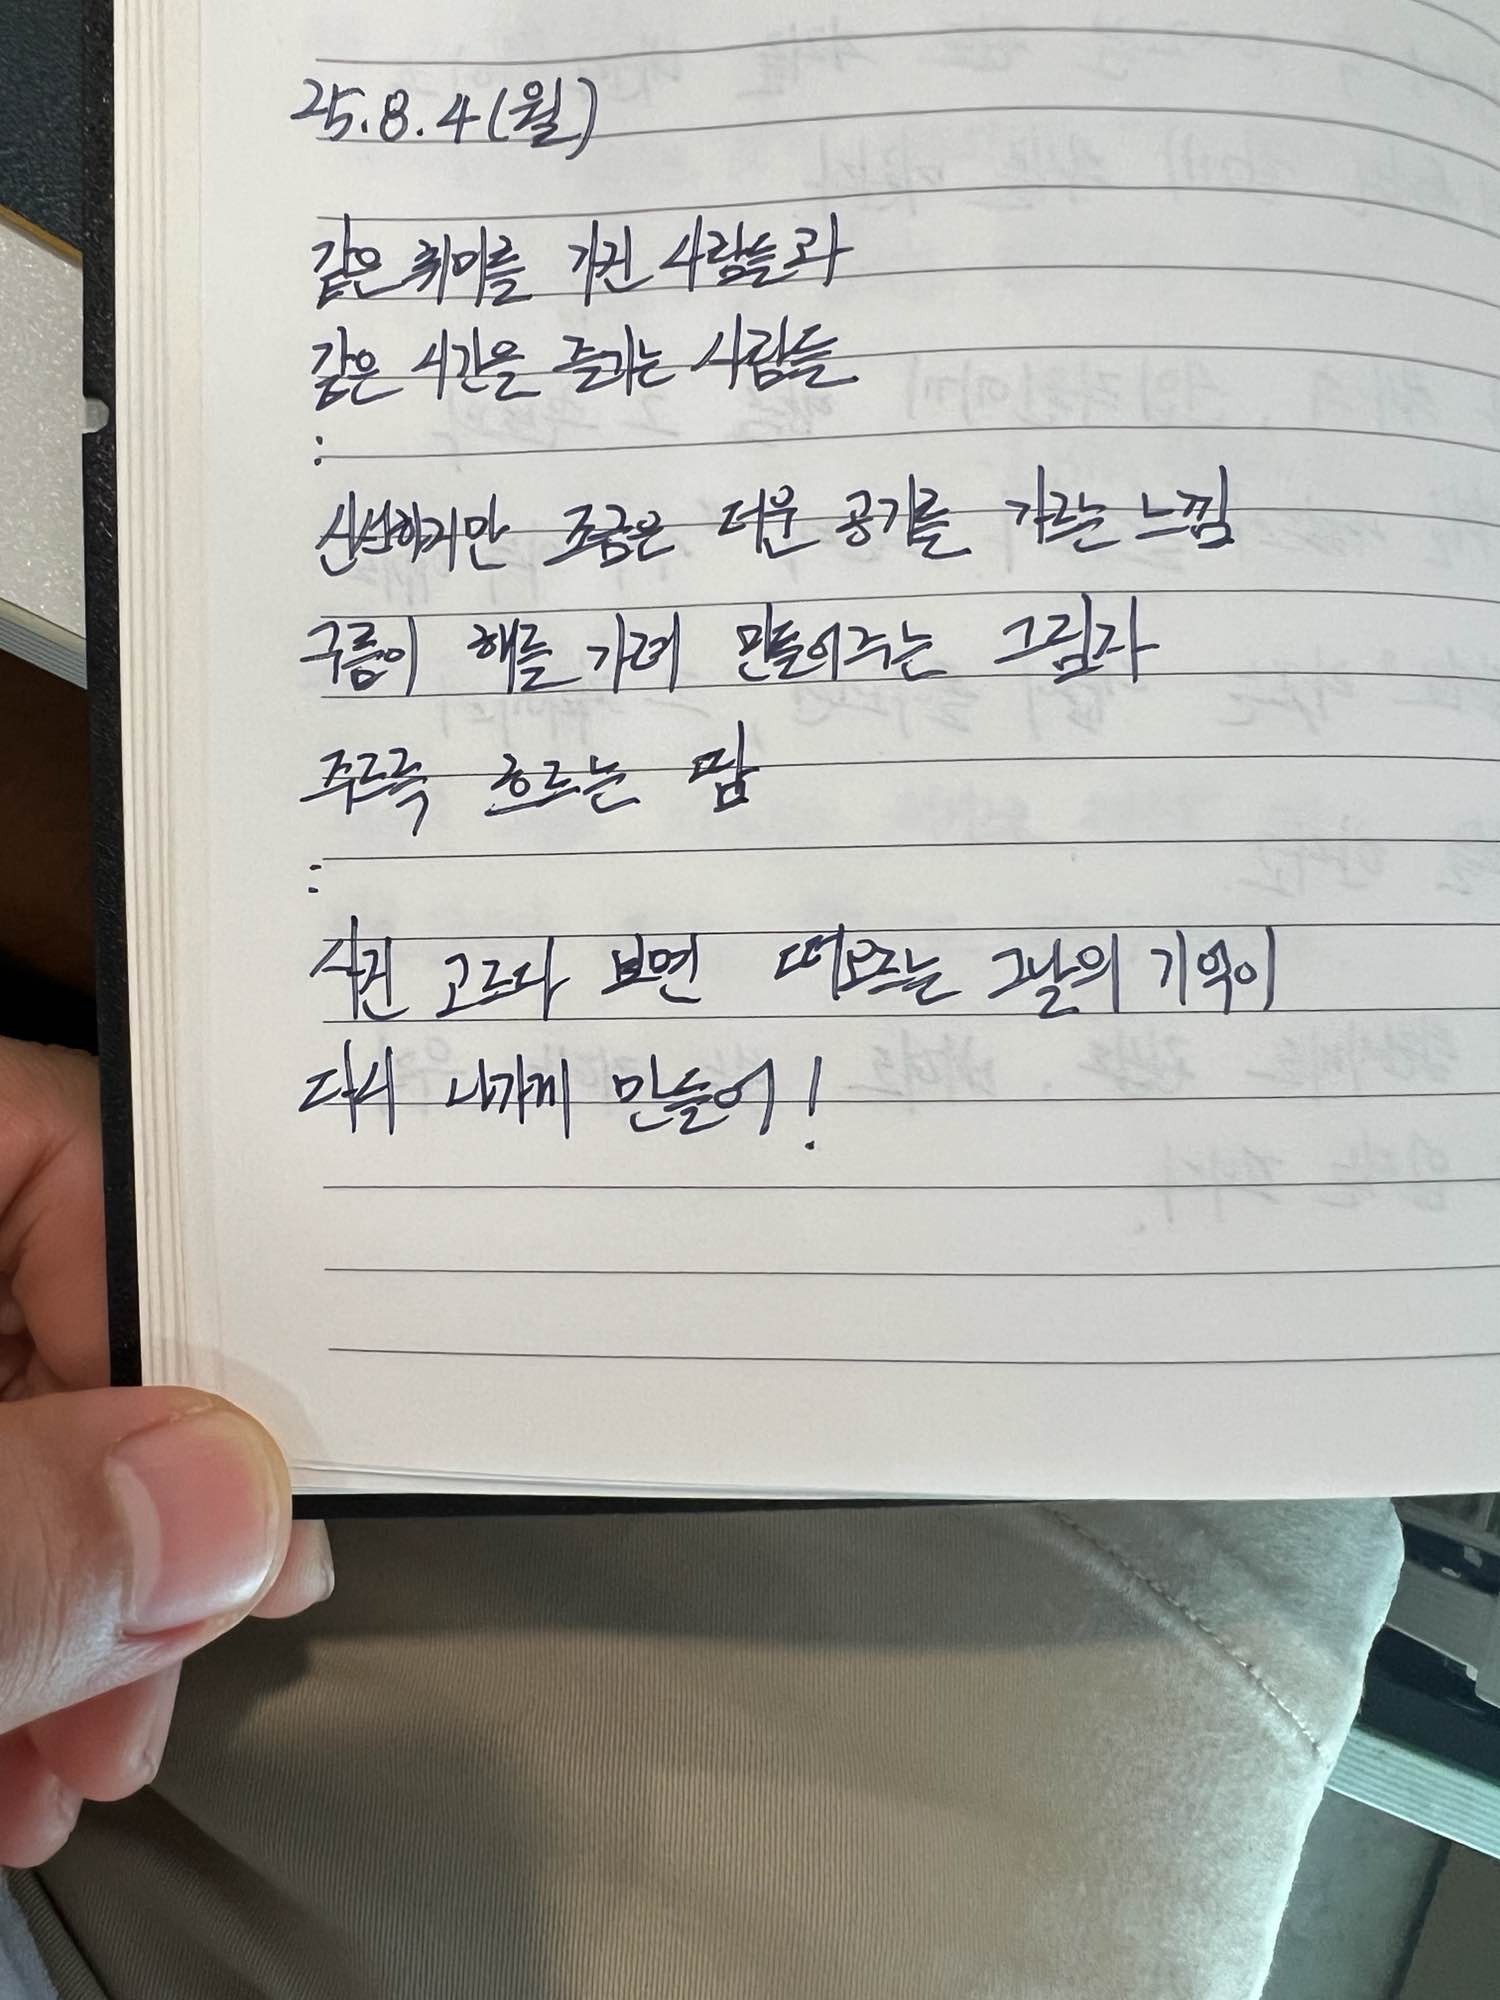 25.8.4(월)
같은 취미를 가진 사람들과
같은 시간을 즐기는 사람들
:
신선하지만 조금은 더운 공기를 가르는 느낌
구름이 해를 가려 만들어주는 그림자
주르륵 흐르는 땀
:
사진 고르다 보면 떠오르는 그날의 기억이
다시 나가게 만들어!